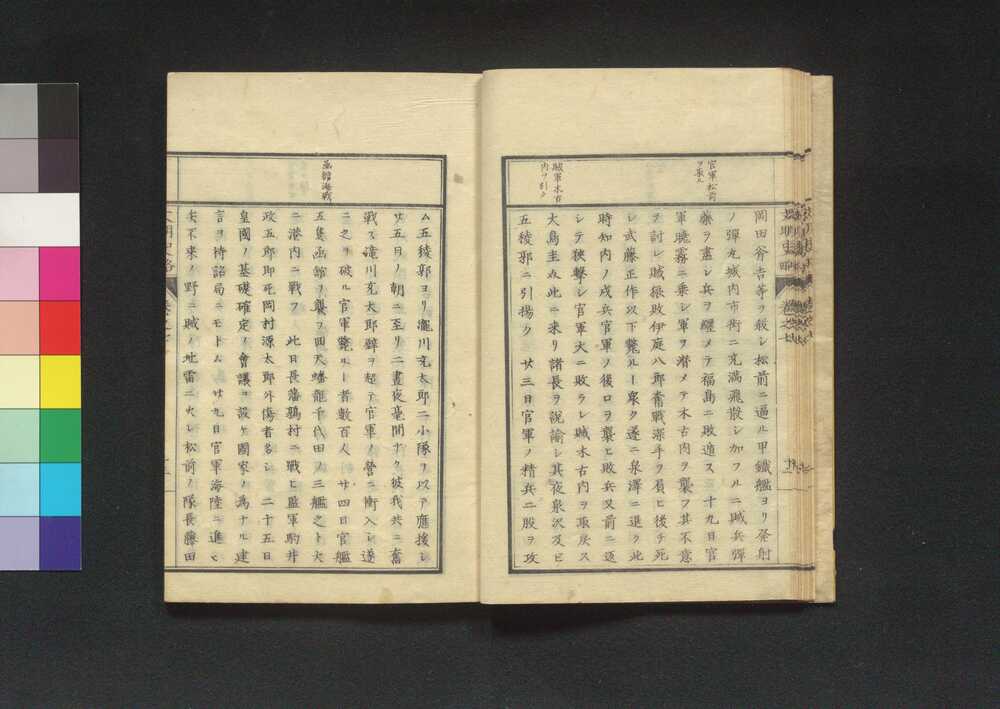 官軍松前
ヲ取ル
賊軍木古
内ヲ引ク
岡田斧吉等ヲ殺シ松前ニ逼ル甲鐵艦ヨリ發射
ノ彈丸城内市街ニ充滿飛散シ加フルニ賊兵彈
藥ヲ盡シ兵ヲ纒メテ福島ニ敗遁ス 十九日官
軍曉霧ニ乗シ軍ヲ潜メテ木古内ヲ襲フ其不意
ヲ討レ賊狼敗伊庭八郎奮戰深手ヲ負ヒ後チ死
シ武藤正作以下斃ルヽ衆夕遂ニ泉澤ニ退ク此
時知内ノ戍兵官軍ノ後ロヲ襲ヒ敗兵又前ニ返
シテ狹撃シ官軍大ニ敗ラレ賊木古内ヲ取戻ス
大鳥圭介此ニ来リ諸長ヲ説諭シ其夜泉沢及ヒ
五稜郭ニ引揚ク 廿三日官軍ノ精兵二股ヲ攻
函館海戰
ム五稜郭ヨリ瀧川充太郎二小隊ヲ以テ應援シ
廿五日ノ朝ニ至リ二晝夜毫間ナク彼我共ニ奮
戰ス滝川充太郎壁ヲ超テ官軍ノ營ニ衝入シ遂
ニ之ヲ破ル官軍斃ルヽ者數百人 廿四日官艦
五隻函館ヲ襲ヲ回天蟠龍千代田ノ三艦之ト大
ニ港内ニ戰フ 此日長藩鵜村ニ戰ヒ監軍駒井
政五郎即死岡村源太郎外傷者多シ 二十五日
皇國ノ基礎確定ノ會議ヲ設ケ國家ノ為ナル建
言ヲ待詔局ニモトム 廿九日官軍海陸ニ進ヒ
矢不来ノ野ニ賊ノ地雷ニ火シ松前ノ隊長藤田